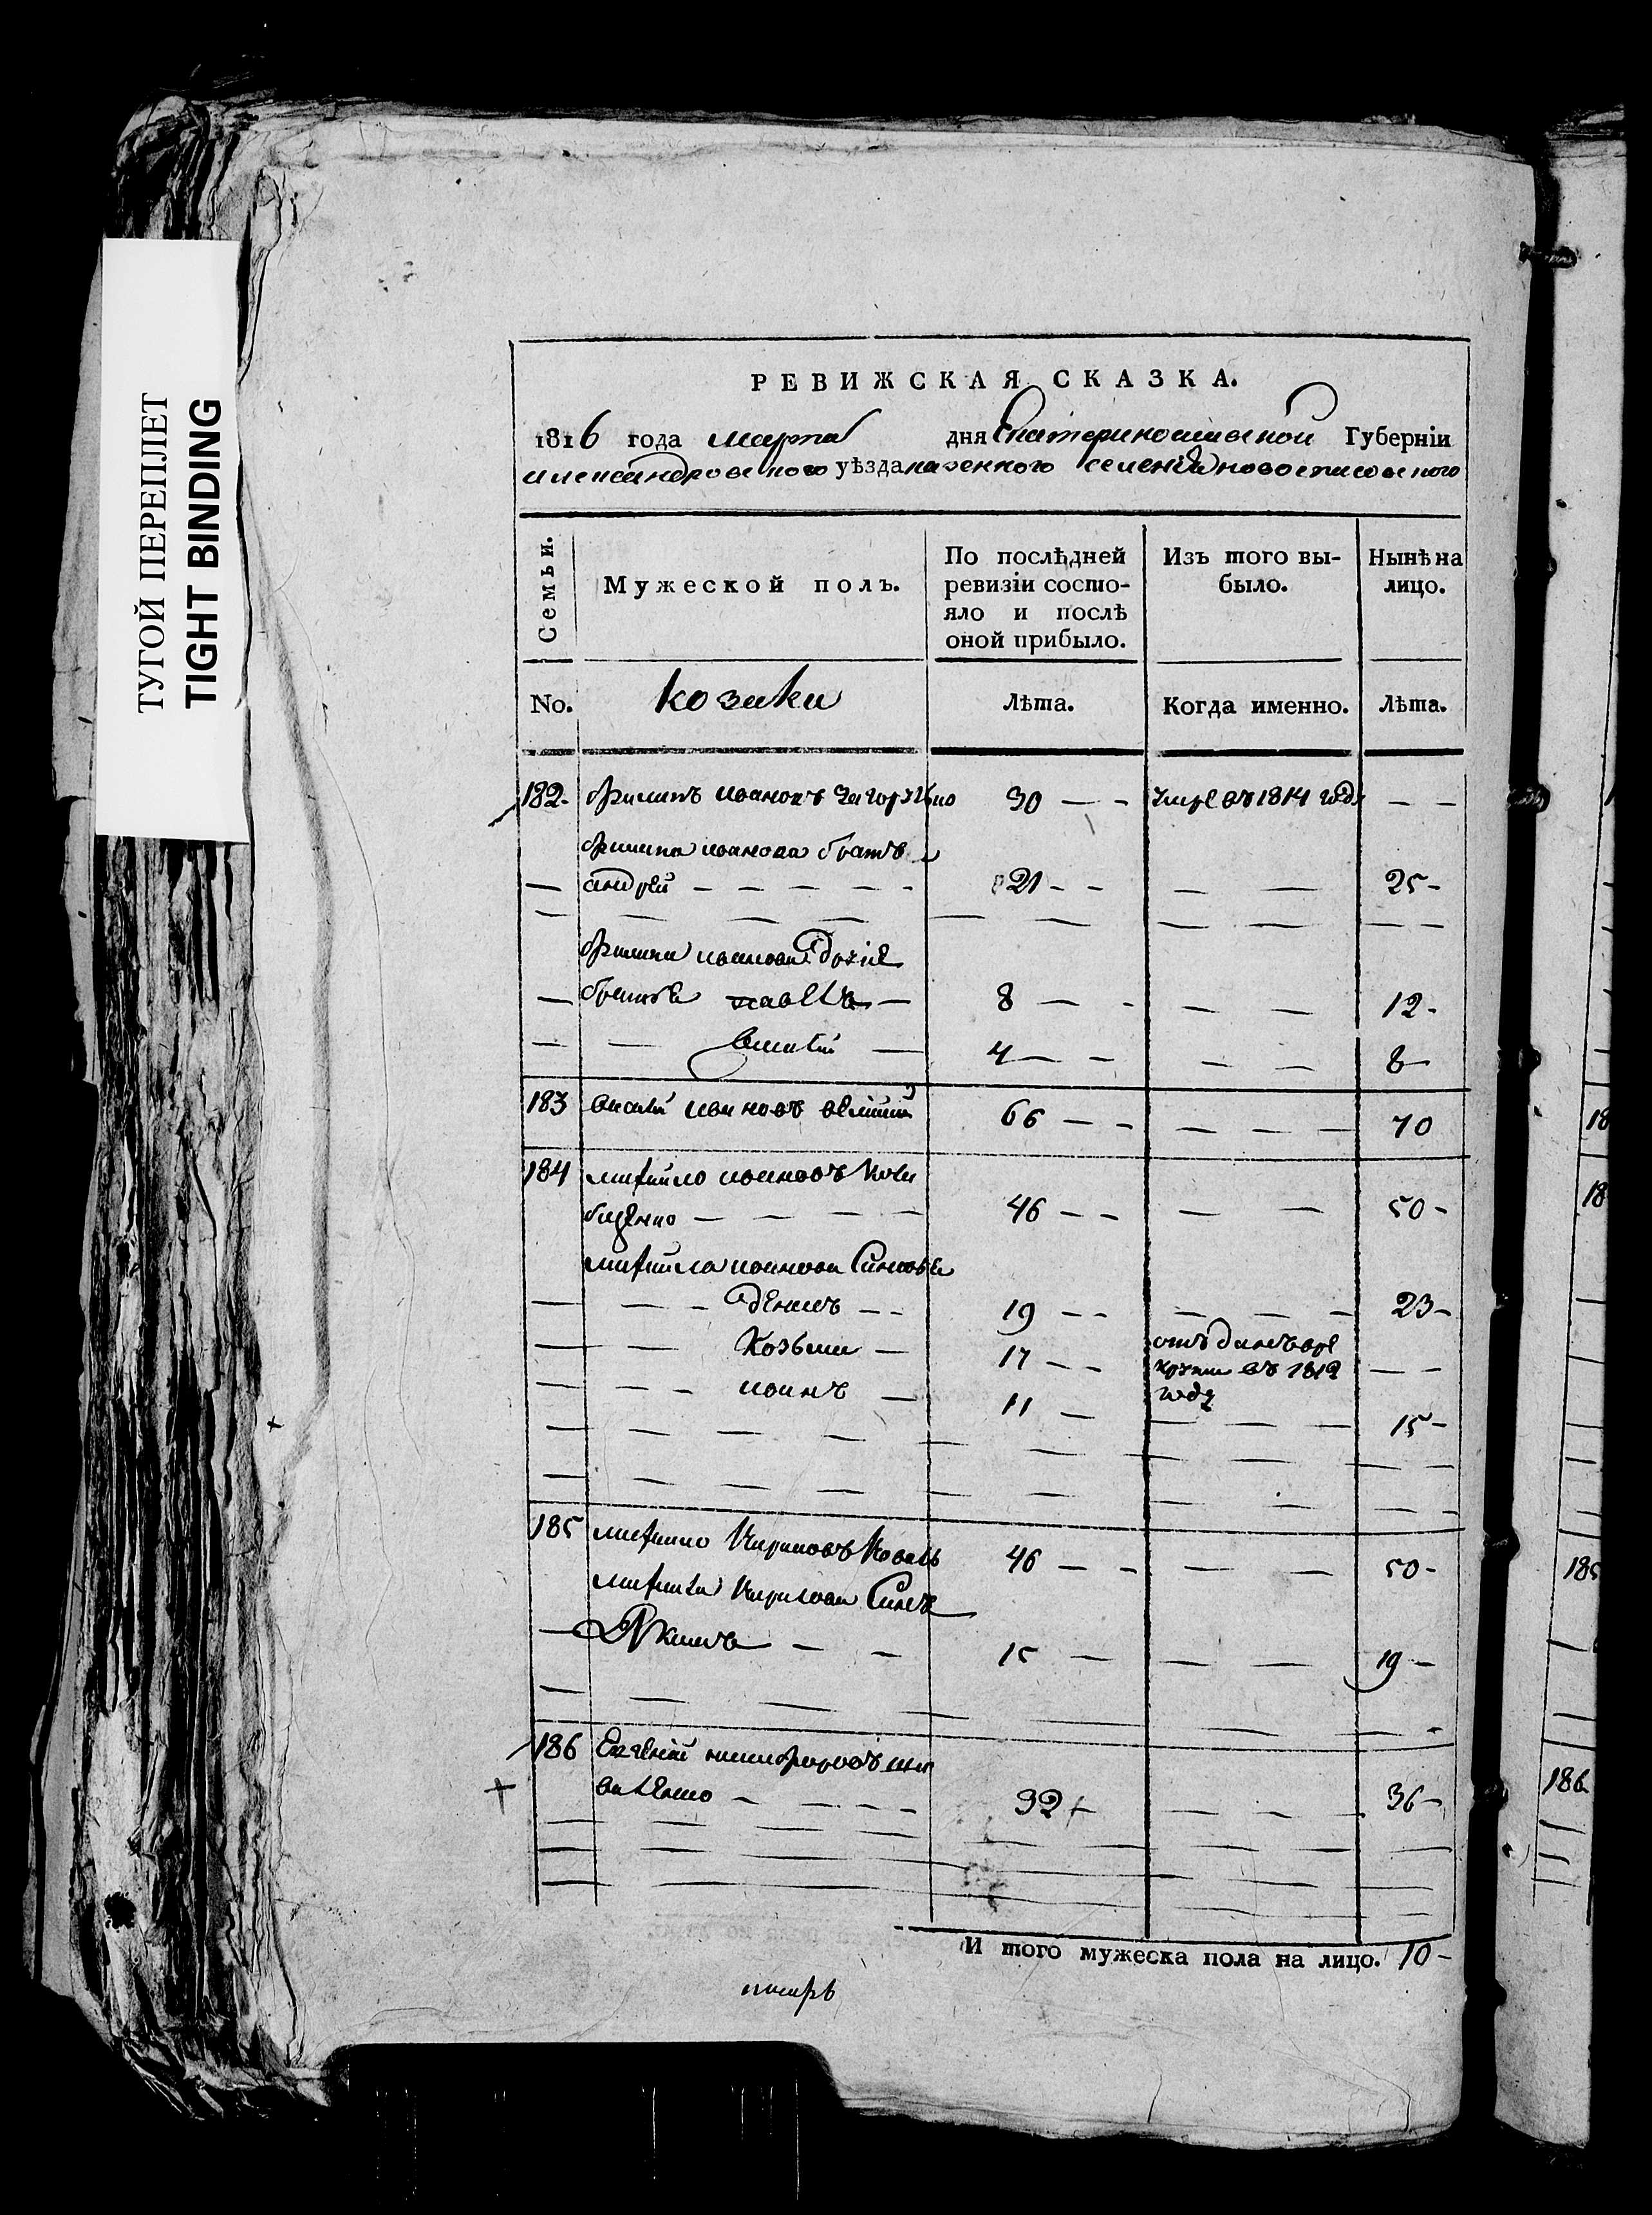 ТУГОЙ ПЕРЕПЛЕТ
TIGHT BINDING
РЕВИЖСКАЯ СКАЗКА.
1816 года марта дня Екатеринославской Губерніи
александровского уѣзда казенного селенія новоспасовского
Семьи. Мужеской полъ. По послѣдней ревизіи состояло и послѣ оной прибыло. Изъ того выбыло. Нынѣ на лицо.
No. козаки Лѣта. Когда именно. Лѣта.
182. филипъ ивановъ 30 — - умре въ 1814 годе — —
филипа иванова братъ
— андрей — — — — - 21 - - — — 25 -
филипа иванова другие
— братья павелъ — 8 — - — — 12 -
— — василий — 4 — - — — 8 —
183 василий ивановъ 66 — - — — — 70
184 михайло ивановъ кочу
бденко — — — — 46 - - — — 50 -
михайла иванова синовья
— — - денисъ - - 19 - - — — - 23 -
— — козьма — 17 - - отъданъ въре
круты въ 1812 — —
году
— — - иванъ — 11 — — — — 15 -
185 михайло кириловъ коваль 46 — - — — 50 -
михайла кирилова синъ
— — — 15 — — — 19 —
186 Евгений никифоровъ
32 - — - — 36 -
И того мужеска пола на лицо. 10 -
писарь
18
18
185
186